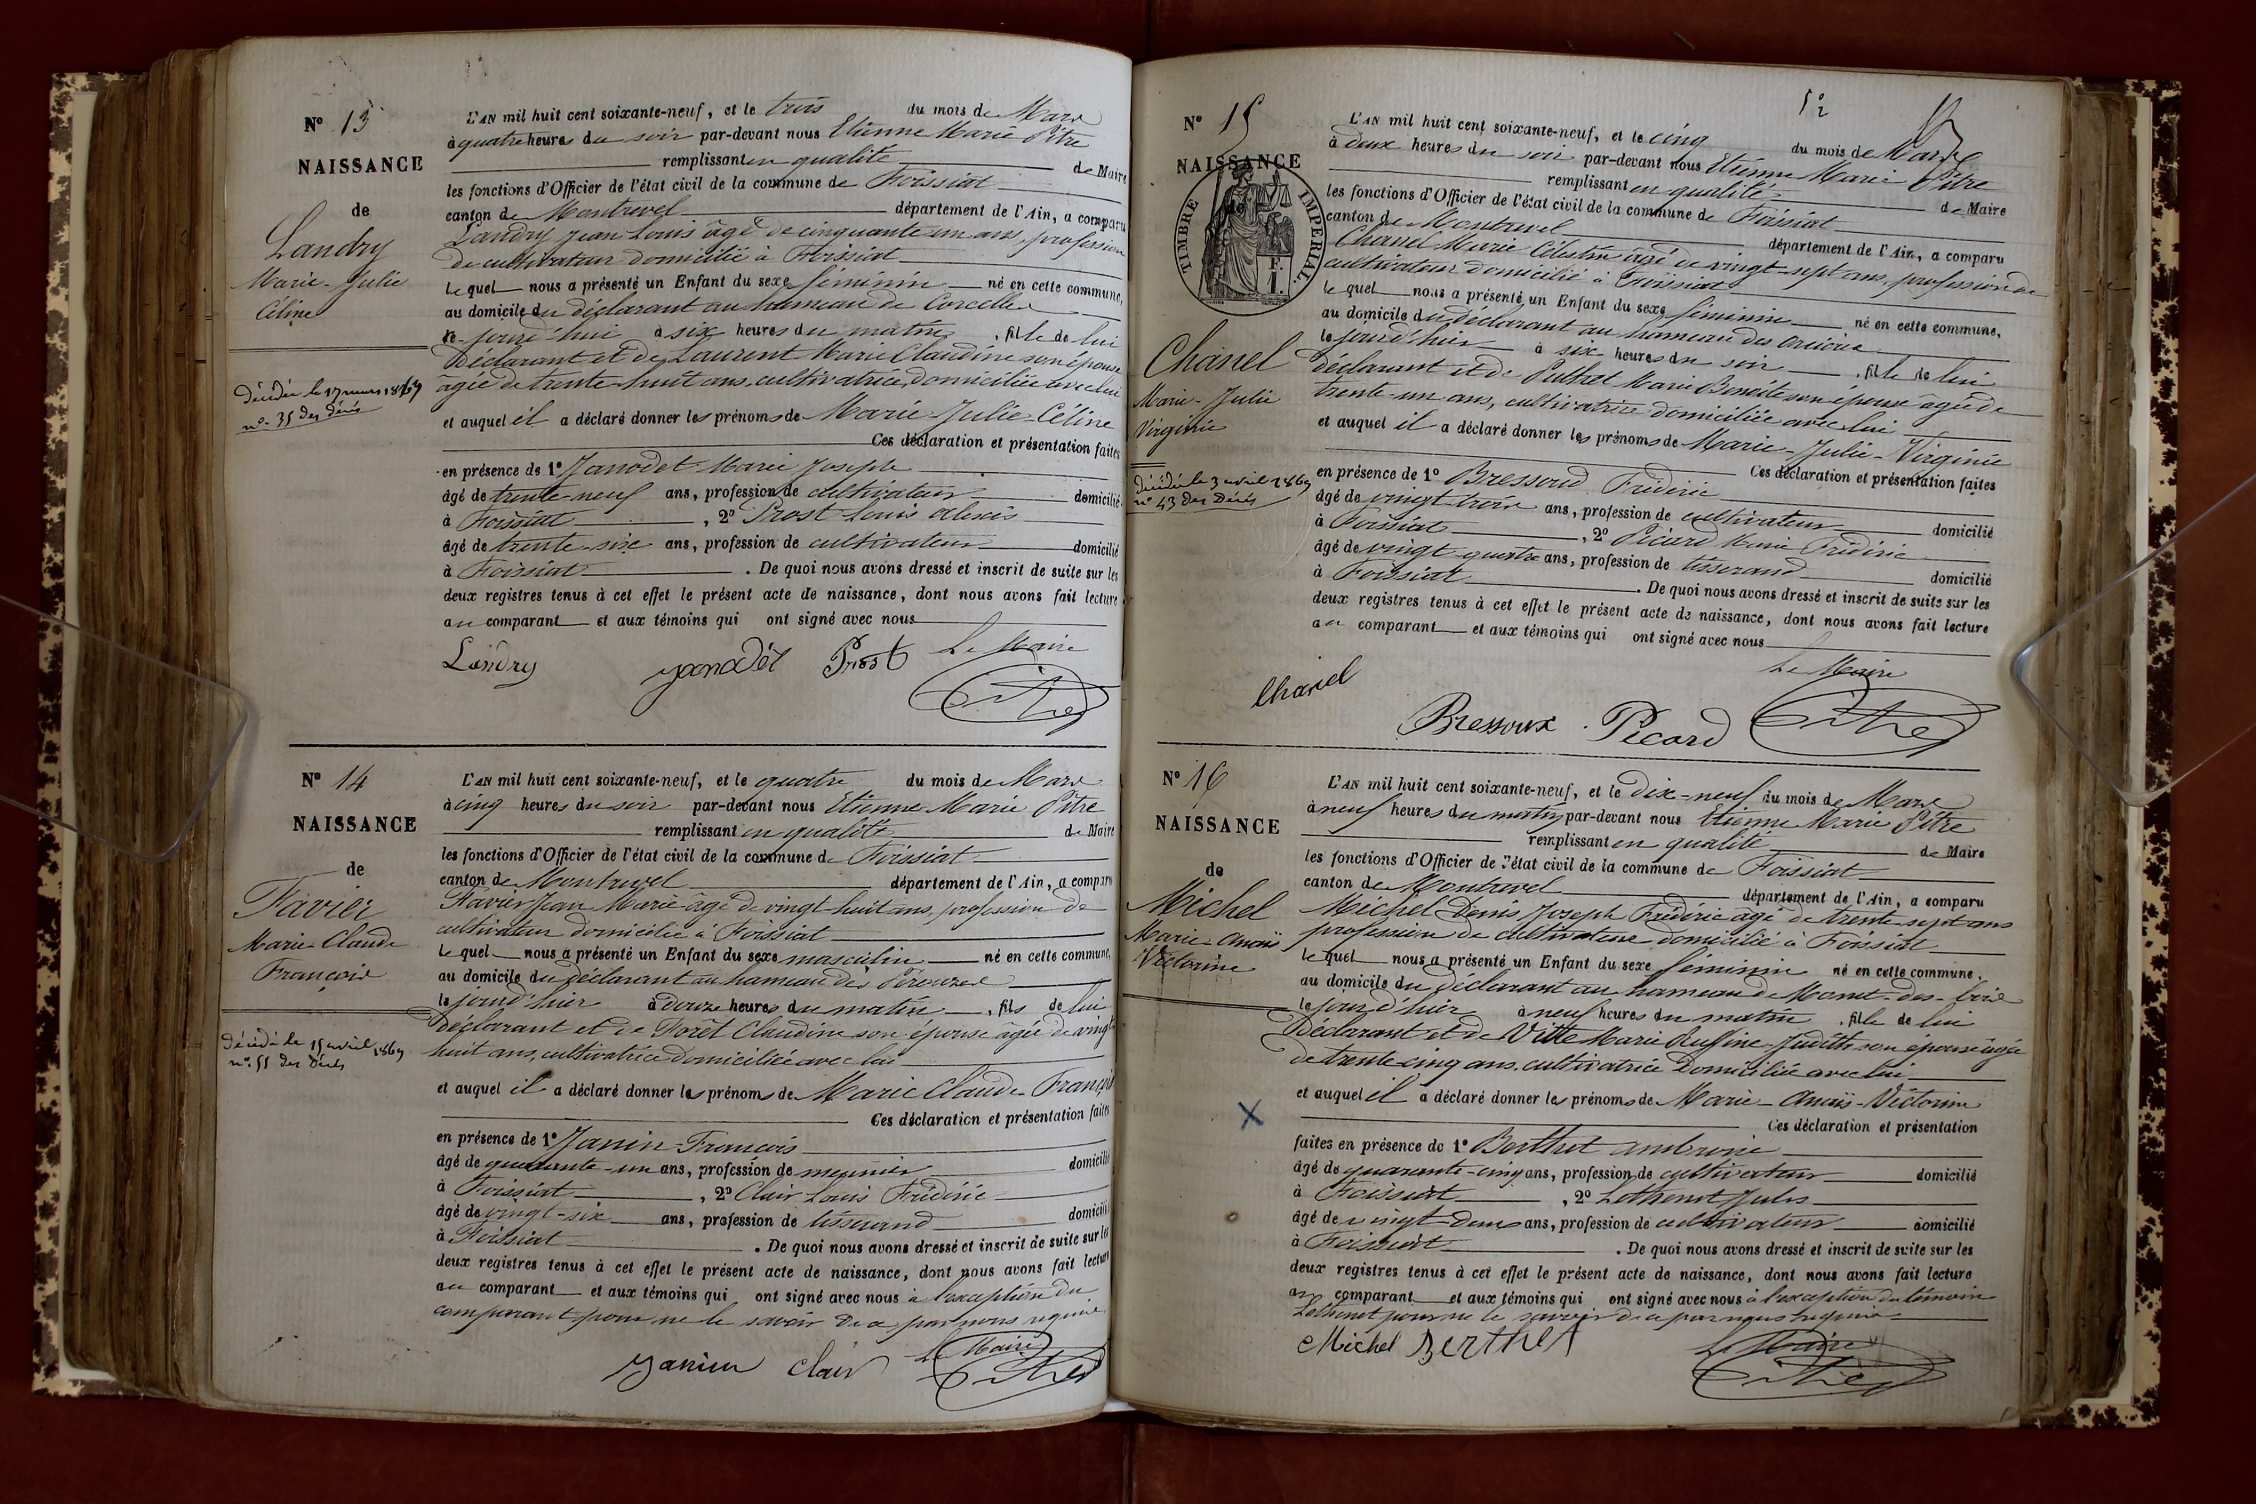 N° 13
NAISSANCE
de
Landry
Marie-Julie
Céline
décédée le 17 mars 1869
n° 35 des décès
L'AN mil huit cent soixante-neuf, et le trois du mois de Mars
à quatre heures du soir par-devant nous Etienne Marie Pitre
remplissant en qualité de Maire
les fonctions d'Officier de l'état civil de la commune de Foissiat
canton de Montrevel département de l'Ain, a comparu
Landry Jean Louis âgé de cinquante un ans, profession
de cultivateur domicilié à Foissiat
lequel nous a présenté un Enfant du sexe féminin né en cette commune,
au domicile du déclarant au hameau de Corcelles
le jourd'hui à six heures du matin, fille de lui
Déclarant et de Laurent Marie Claudine son épouse
agée de trente-huit ans, cultivatrice, domiciliée avec lui
et auquel il a déclaré donner les prénoms de Marie-Julie-Céline
Ces déclaration et présentation faites
en présence de 1° Janodet Marie Joseph
âgé de trente-neuf ans, profession de cultivateur domicilié
à Foissiat, 2° Prost Louis Alexis
âgé de trente-six ans, profession de cultivateur domicilié
à Foissiat. De quoi nous avons dressé et inscrit de suite sur les
deux registres tenus à cet effet le présent acte de naissance, dont nous avons fait lecture
au comparant et aux témoins qui ont signé avec nous
Le Maire
Landry Janodet Prost Pitre
N° 14
NAISSANCE
de
Favier
Marie-Claude
François
Décédé le 15 avril 1869
n° 55 des Décès
L'AN mil huit cent soixante-neuf, et le quatre du mois de Mars
à cinq heures du soir par-devant nous Etienne Marie Pitre
remplissant en qualité de Maire
les fonctions d'Officier de l'état civil de la commune de Foissiat
canton de Montrevel département de l'Ain, a comparu
Favier Jean Marie âgé de vingt huit ans, profession de
cultivateur domicilié à Foissiat
lequel nous a présenté un Enfant du sexe masculin né en cette commune,
au domicile du déclarant au hameau des Pérouzes
le jourd'hier à douze heures du matin, fils de lui
Déclarant et de Morêt Claudine son épouse agée de vingt
huit ans, cultivatrice domiciliée avec lui
et auquel il a déclaré donner les prénoms de Marie Claude-François
Ces déclaration et présentation faites
en présence de 1° Janin François
âgé de quarante-un ans, profession de meunier domicilié
à Foissiat, 2° Clair Louis Frédéric
âgé de vingt-six ans, profession de tisserand domicilié
à Foissiat. De quoi nous avons dressé et inscrit de suite sur les
deux registres tenus à cet effet le présent acte de naissance, dont nous avons fait lecture
au comparant et aux témoins qui ont signé avec nous à l'exception du
comparant pour ne le savoir de ce par nous requis
Le Maire
Janin Clair Pitre
N° 15
NAISSANCE
TIMBRE IMPERIAL
F.
Chanel
Marie-Julie
Virginie
décédé le 3 avril 1869
n° 43 des Décès
L'AN mil huit cent soixante-neuf, et le cinq du mois de Mars
à deux heures du soir par-devant nous Etienne Marie Pitre
remplissant en qualité de Maire
les fonctions d'Officier de l'état civil de la commune de Foissiat
canton de Montrevel département de l'Ain, a comparu
Chanel Marie Célestin âgé de vingt-sept ans, profession de
cultivateur domicilié à Foissiat
lequel nous a présenté un Enfant du sexe féminin né en cette commune,
au domicile du déclarant au hameau des
le jourd'hier à six heures du soir, fille de lui
déclarant et de Puthet Marie Benoîte son épouse agée de
trente-un ans, cultivatrice domiciliée avec lui
et auquel il a déclaré donner les prénoms de Marie-Julie-Virginie
Ces déclaration et présentation faites
en présence de 1° Bressoud Frédéric
âgé de vingt trois ans, profession de cultivateur domicilié
à Foissiat, 2° Picard Marie Frédéric
âgé de vingt-quatre ans, profession de tisserand domicilié
à Foissiat. De quoi nous avons dressé et inscrit de suite sur les
deux registres tenus à cet effet le présent acte de naissance, dont nous avons fait lecture
au comparant et aux témoins qui ont signé avec nous
Le Maire
Chanel
Bressoux Picard Pitre
N° 16
NAISSANCE
de
Michel
Marie-Anaïs
Victorine
L'AN mil huit cent soixante-neuf, et le Dix-neuf du mois de Mars
à neuf heures du matin par-devant nous Etienne Marie Pitre
remplissant en qualité de Maire
les fonctions d'Officier de l'état civil de la commune de Foissiat
canton de Montrevel département de l'Ain, a comparu
Michel Denis Joseph Frédéric âgé de trente-sept ans
profession de cultivateur domicilié à Foissiat
lequel nous a présenté un Enfant du sexe féminin né en cette commune,
au domicile du déclarant au hameau de
le jour d'hier à neuf heures du matin, fille de lui
Déclarant et de Vitte Marie Ruffine-Judith son épouse âgée
de trente-cinq ans, cultivatrice Domiciliée avec lui
et auquel il a déclaré donner les prénoms de Marie-Anaïs-Victorine
Ces déclaration et présentation
faites en présence de 1° Berthet Ambroise
âgé de quarante-cinq ans, profession de cultivateur domicilié
à Foissiat, 2° Lethenot Jules
âgé de vingt-deux ans, profession de cultivateur domicilié
à Foissiat. De quoi nous avons dressé et inscrit de suite sur les
deux registres tenus à cet effet le présent acte de naissance, dont nous avons fait lecture
au comparant et aux témoins qui ont signé avec nous à l'exception du témoin
Lethenot pour ne le savoir de ce par nous requis
Le Maire
Michel Berthet Pitre